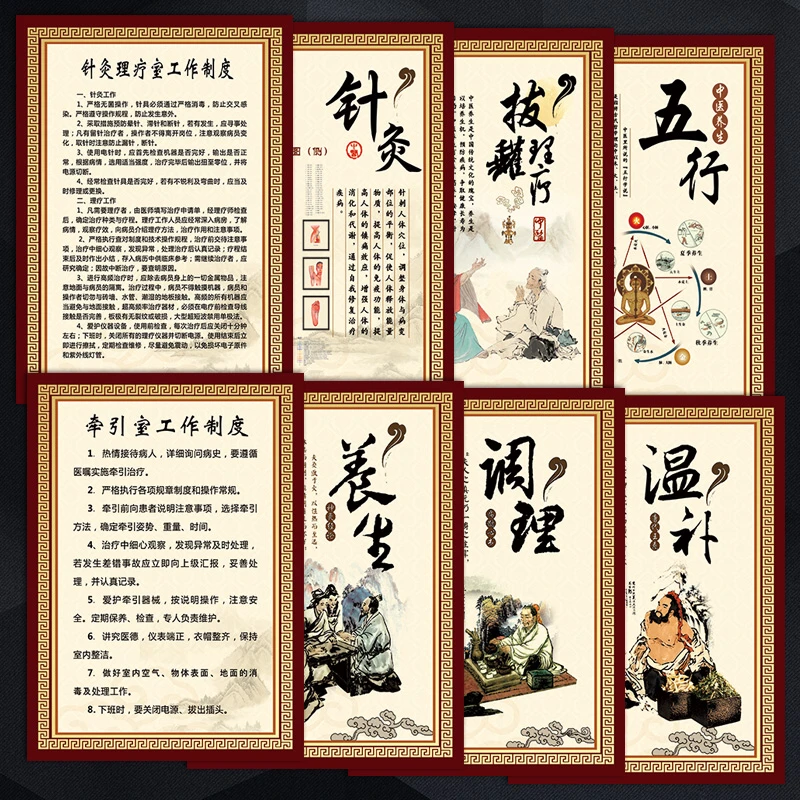 针灸理疗室工作制度
一、针灸工作
1、严格无菌操作，针具必须通过严格消毒，防止交叉感
染。严格遵守操作规程，防止发生意外。
2、采取措施预防晕针、滞针和断针，若有发生，应寻事处
理；凡有留针治疗者，操作者不得离开岗位，注意观察病员变
化，取针时注意防止漏针、断针。
3、使用电针时，应首先检查机器是否完好，输出是否正
常，根据病情，选用适当强度，治疗完毕后输出扭至零位，并将
电源切断。
4、经常检查针具是否完好，若有不锐利及弯曲时，应当及
时修理或更换。
二、理疗工作
1、凡需要理疗者，由医师填写治疗申请单，经理疗师检查
后，确定治疗种类与疗程。理疗工作人员应经常深入病房，了解
病情，观察疗效，向病员介绍理疗方法，治疗作用和注意事项。
2、严格执行查对制度和技术操作规程，治疗前交待注意事
项，治疗中细心观察，发现异常，处理治疗后认真记录；疗程结
束后及时作出小结，存入病历中供临床参考；需继续治疗者，应
研究确定；因故中断治疗，要查明原因。
3、进行高频治疗时，应除去病员身上的一切金属物品，注
意地面与病员的隔离。治疗过程中，病员不得触摸机器，病员和
操作者切勿与砖墙、水管、潮湿的地板接触。高频的所有机器应
当避免与地面接触，超高频率治疗器材，必须在电疗前检查导线
接触是否完善，极板有无裂纹或破损，大型超短波禁用单极法。
4、爱护仪器设备，使用前检查，每次治疗后应关闭十分钟
左右；下班时，关闭所有的理疗仪器并切断电源。使用结束后立
即进行擦拭，定期检查维修，尽量避免震动，以免损坏电子原件
和紫外线灯管。
针灸
中医
图（例）
针刺人体穴位，调整身体与病变
部位的平衡，促使人体释放能量
物质，提高人体的免疫功能，提
高人体的镇痛效应，增强人体的
消化和代谢，通过自我修复治疗
疾病。
拔罐理疗
五行
中医养生
夏季养生
秋季养生
牵引室工作制度
1、热情接待病人，详细询问病史，要遵循
医嘱实施牵引治疗。
2、严格执行各项规章制度和操作常规。
3、牵引前向患者说明注意事项，选择牵引
方法，确定牵引姿势、重量、时间。
4、治疗中细心观察，发现异常及时处理，
若发生差错事故应立即向上级汇报，妥善处
理，并认真记录。
5、爱护牵引器械，按说明操作，注意安
全。定期保养、检查，专人负责维护。
6、讲究医德，仪表端正，衣帽整齐，保持
室内整洁。
7、做好室内空气、物体表面、地面的消
毒及处理工作。
8、下班时，要关闭电源、拔出插头。
养生
调理
温补